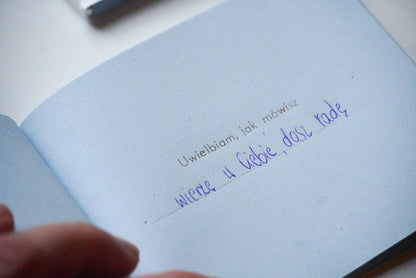 Uwielbiam, jak mówisz
wierzę w Ciebie, dasz radę